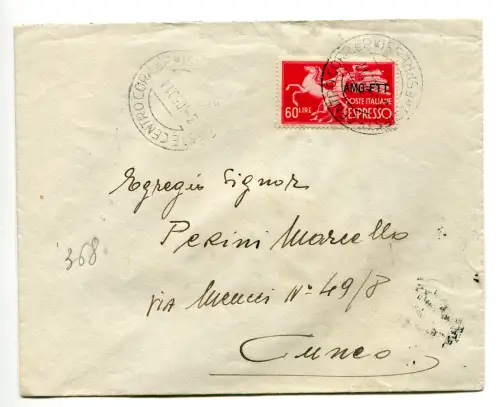 AMG-FTT
POSTE ITALIANE
60 LIRE ESPRESSO
Egregio Signor
Perini Marcello
Via Meucci Nº 49/8
Cuneo
368